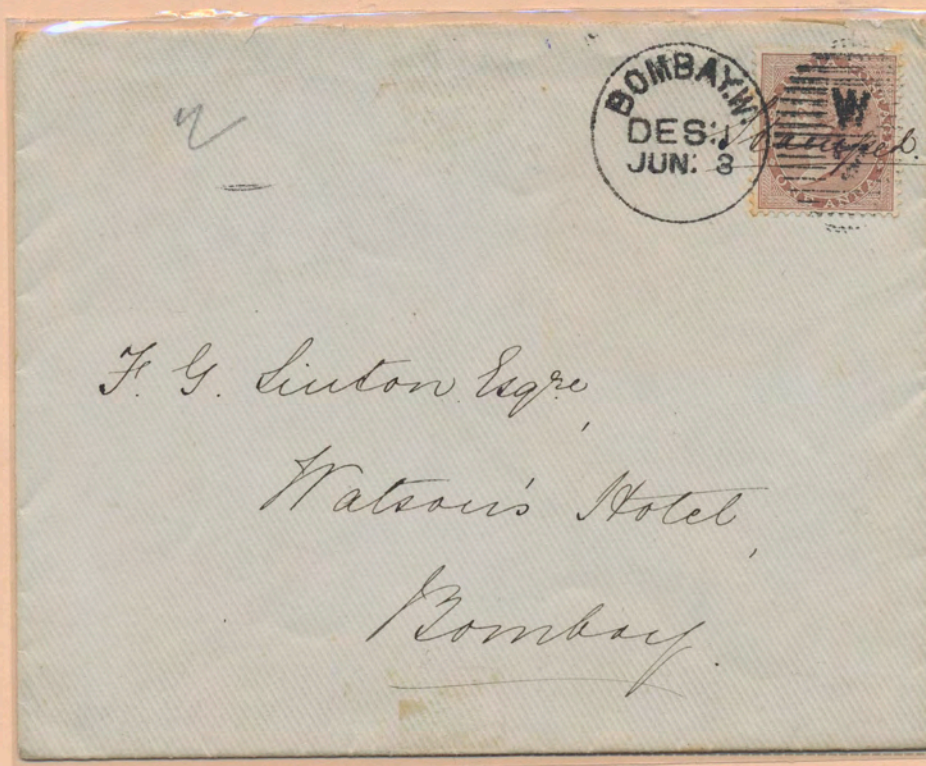 BOMBAY.W.
DES:1
JUN: 3
W
Stamped.
ONE ANNA
F. G. Linton Esqre,
Watson's Hotel,
Bombay.